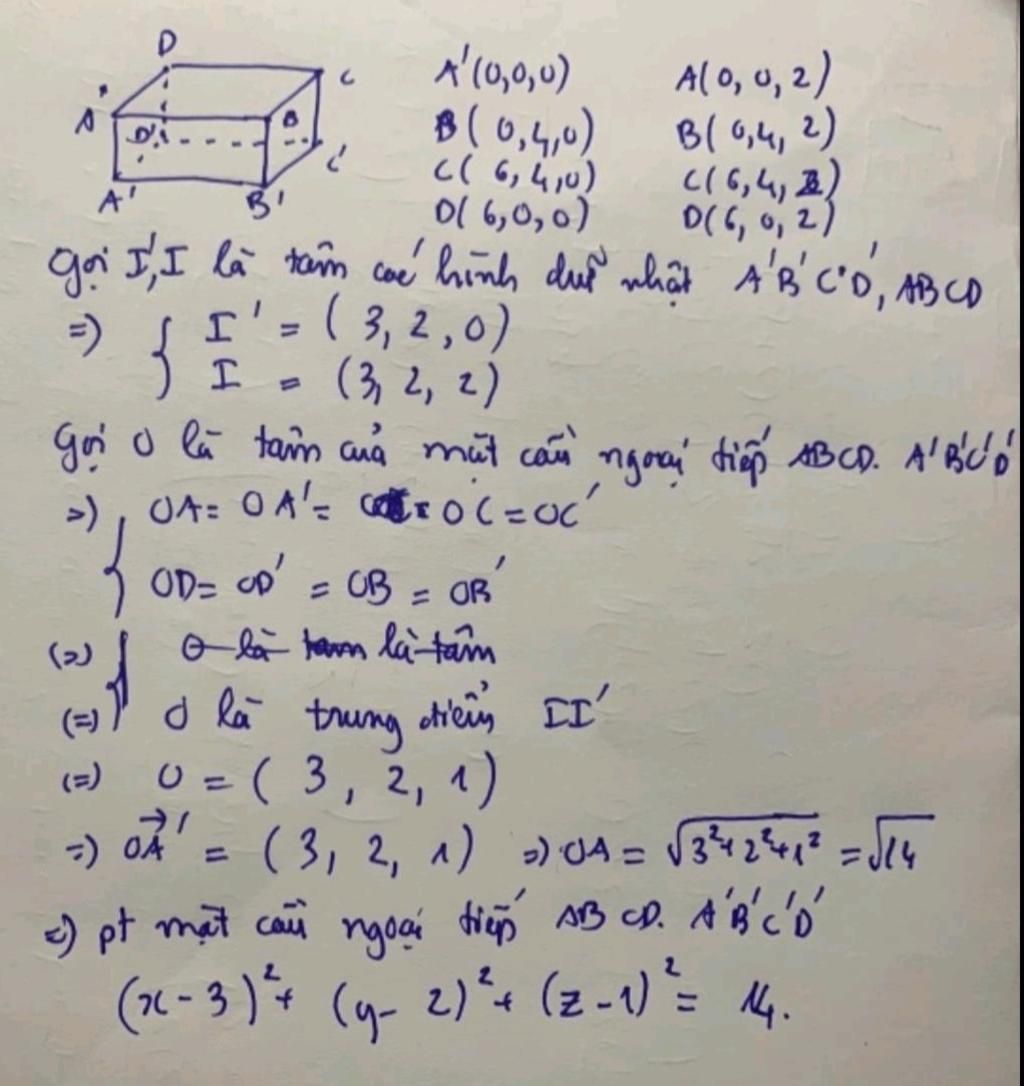 D
C
A
B
D'
C'
A'
B'
A'(0,0,0) A(0, 0, 2)
B( 0,4,0) B( 0,4, 2)
C( 6, 4,0) C( 6, 4, 2)
D( 6,0, 0) D( 6, 0, 2)
Gọi I',I là tâm các hình chữ nhật A'B'C'D', ABCD
=> { I' = ( 3, 2, 0)
I = (3, 2, 2)
Gọi O là tâm của mặt cầu ngoại tiếp ABCD. A'B'C'D'
=> { OA = OA' = OC = OC'
OD = OD' = OB = OB'
(=) { O là tam là tâm
(=) O là trung điểm II'
(=) O = ( 3, 2, 1)
=) OA' = ( 3, 2, 1) =) OA = √3²+2²+1² = √14
=) pt mặt cầu ngoại tiếp ABCD. A'B'C'D'
(x - 3)² + (y - 2)² + (z - 1)² = 14.